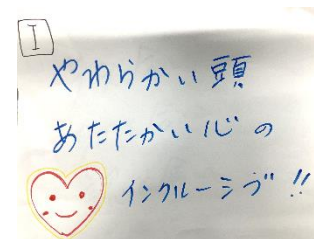 I
やわらかい頭
あたたかい心の
インクルーシブ!!